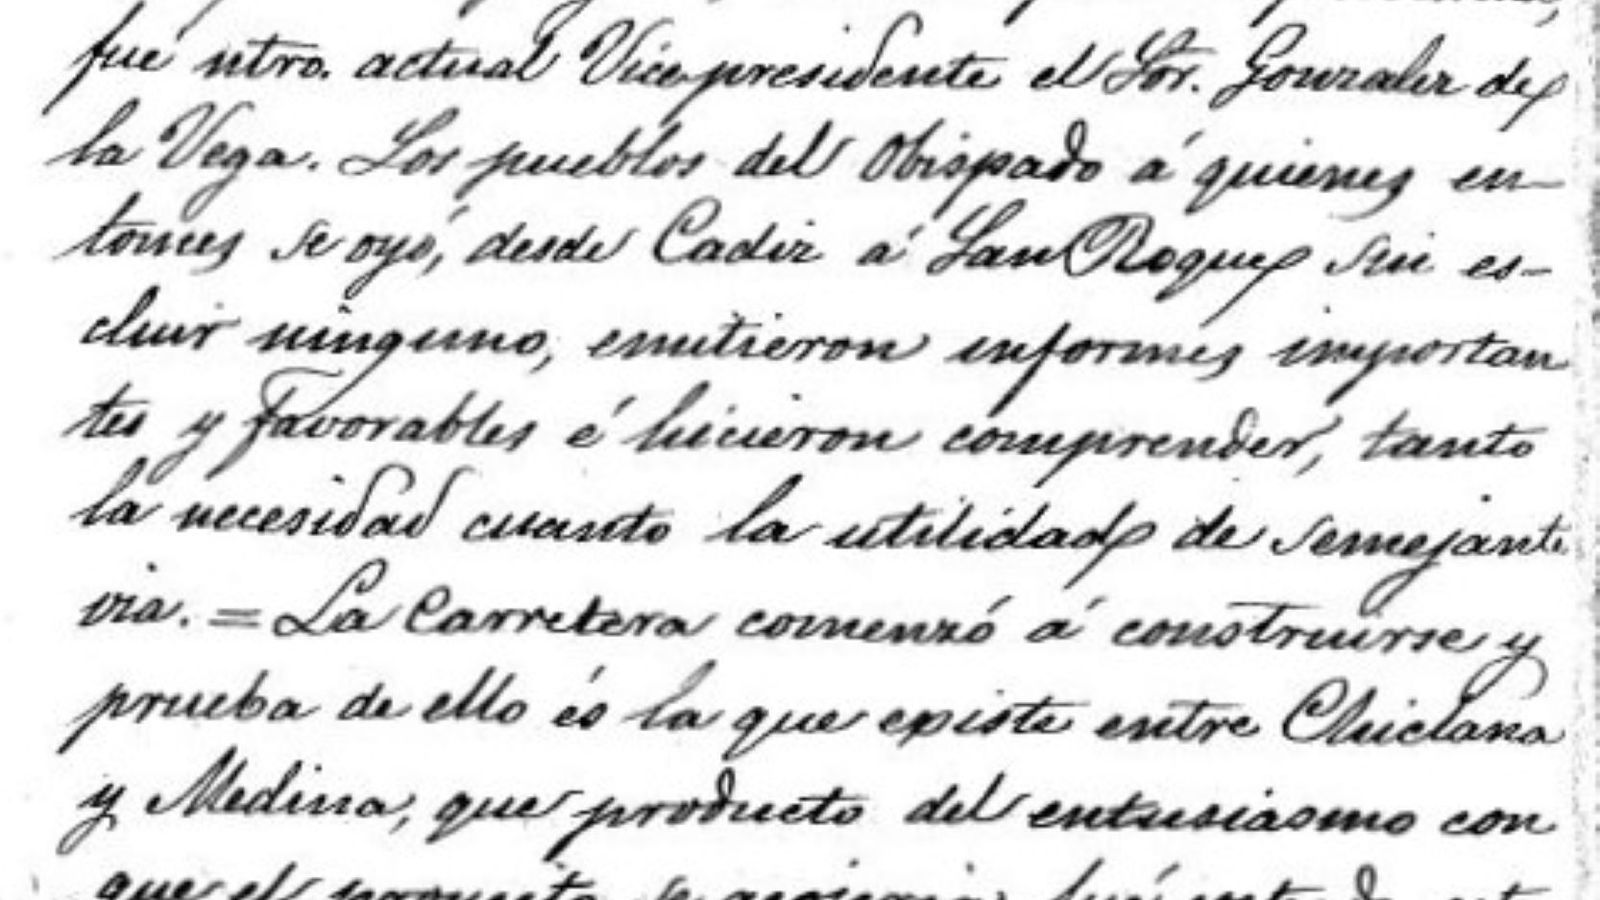 fué ntro. actual Vicepresidente el Sor. Gonzalez de
la Vega. Los pueblos del Obispado á quienes en-
tonces se oyó, desde Cadiz á San Roque sin es-
cluir ninguno, emitieron informes importan
tes y favorables é hicieron comprender, tanto
la necesidad cuanto la utilidad de semejante
via. = La Carretera comenzó á construirse y
prueba de ello és la que existe entre Chiclana
y Medina, que producto del entusiasmo con
que el